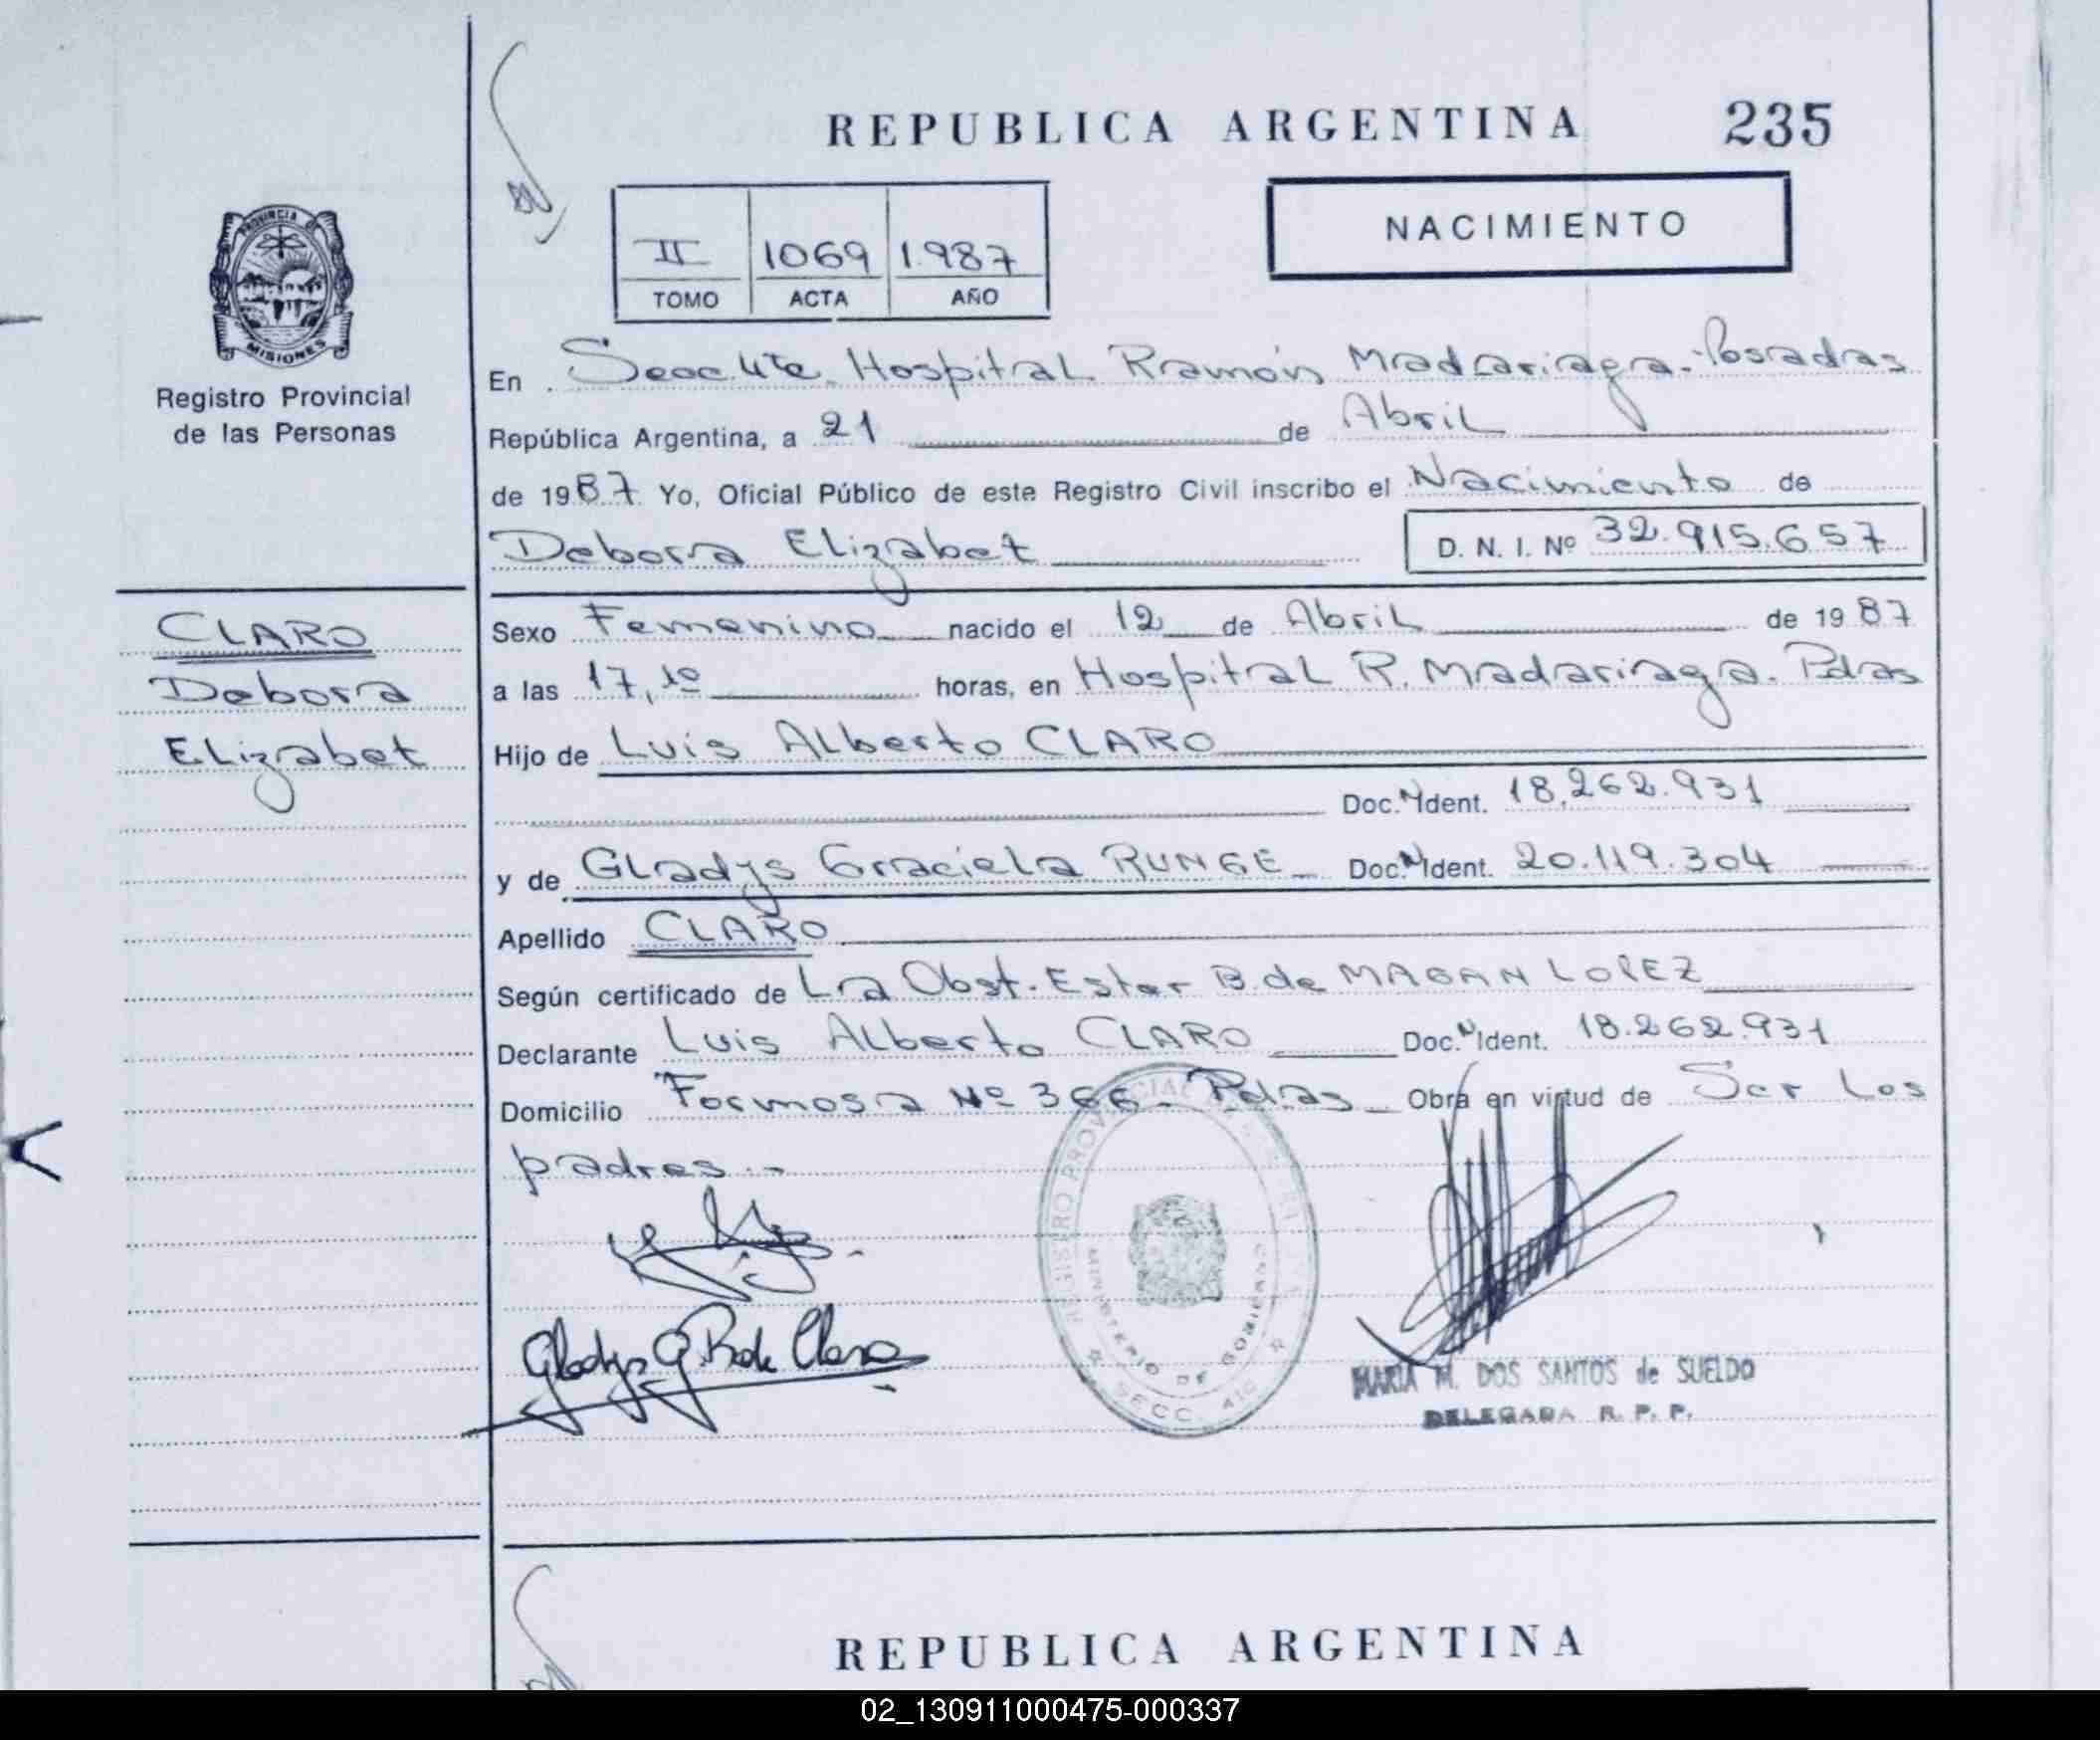 REPUBLICA ARGENTINA 235
II 1069 1.987
TOMO ACTA AÑO
NACIMIENTO
PROVINCIA
MISIONES
Registro Provincial
de las Personas
En Secc. 4ta. Hospital Ramón Madariaga - Posadas
República Argentina, a 21 de Abril
de 1987 Yo, Oficial Público de este Registro Civil inscribo el Nacimiento de
Debora Elizabet D. N. I. Nº 32.915.657
CLARO
Debora
Elizabet
Sexo Femenino nacido el 12 de Abril de 1987
a las 17,10 horas, en Hospital R. Madariaga. Pdas
Hijo de Luis Alberto CLARO
Doc. N Ident. 18.262.931
y de Gladys Graciela RUNGE Doc. N Ident. 20.119.304
Apellido CLARO
Según certificado de La Obst. Ester B. de MAGAN LOPEZ
Declarante Luis Alberto CLARO Doc. N Ident. 18.262.931
Domicilio Formosa Nº 366 - Pdas Obra en virtud de Ser Los
padres.-
Gladys G. R de Claro
REGISTRO PROVINCIAL
MINISTERIO DE GOBIERNO
SECC. 4ta
MARIA M. DOS SANTOS de SUELDO
DELEGADA R. P. P.
REPUBLICA ARGENTINA
02_130911000475-000337